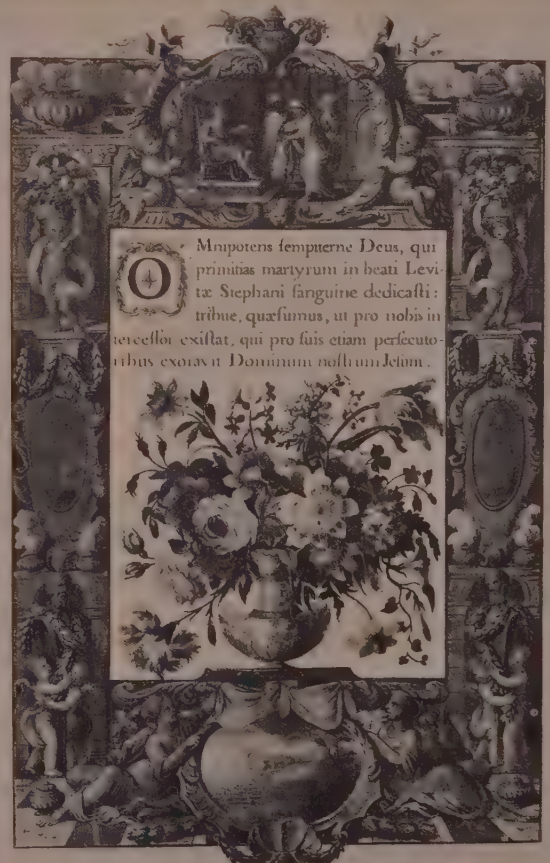 OMnipotens sempiterne Deus, qui
primitias martyrum in beati Levi-
tæ Stephani sanguine dedicasti :
tribue, quæsumus, ut pro nobis in
tercessor existat, qui pro suis etiam persecuto-
ribus exoravit Dominum nostrum Jesum .